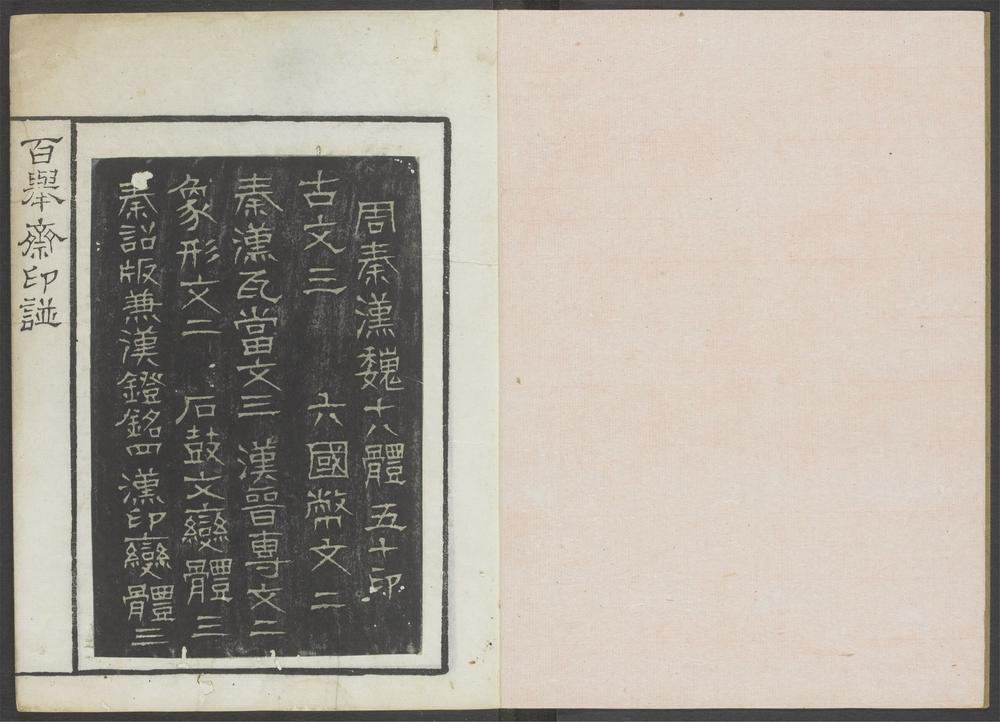 周秦漢魏十八體五十印
古文三　六國幣文二
秦漢瓦當文三　漢晉專文二
象形文二　石鼓文變體三
秦詔版兼漢鐙銘四漢印變體三
百舉齋印譜